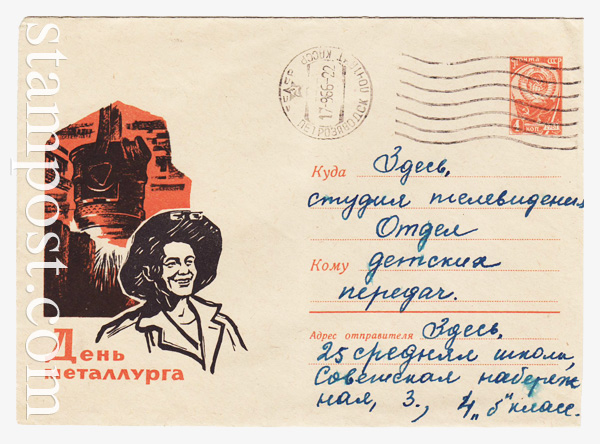 stampost.com
ПЕТРОЗАВОДСК
17-9 66-22
ПОЧТА СССР
4 КОП
Куда Здесь,
студия телевидения
Отдел
Кому детских
передач.
День
металлурга
Адрес отправителя Здесь,
25 средняя школа,
Советская набереж
ная, 3., 4 „б" класс.